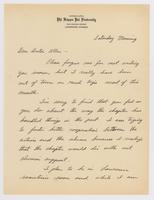 Phi Kappa Psi Fraternity
Saturday Morning
Dear Sister Ellen -
Please forgive me for not writing
you sooner, but I really have been
out of town on much of
most of this
month.
I'm sorry to find that you feel as
you do about the way the chapter has
handled things in the past. I am trying
to foster better cooperation between the
actives and the alumni because
that the chapter would die with out
alumni support.
I plan to be in Lawrence
sometime soon and while I am